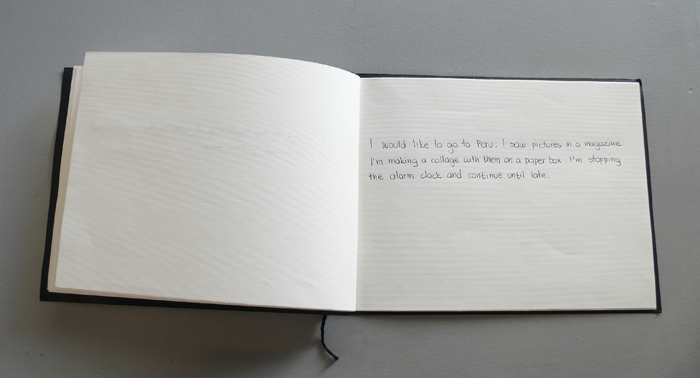 I would like to go to Peru. I saw pictures in a magazine
I'm making a collage with them on a paper box. I'm stopping
the alarm clock and continue until late.